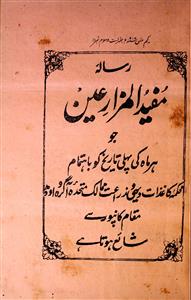 رسالۂ
مفید المزارعین
جو
ہر ماہ کی پہلی تاریخ کو باہتمام
محکمہ کاغذات دیہی و زراعت ممالک متحدہ آگرہ و اودھ
مقام کانپور سے
شائع ہوتا ہے